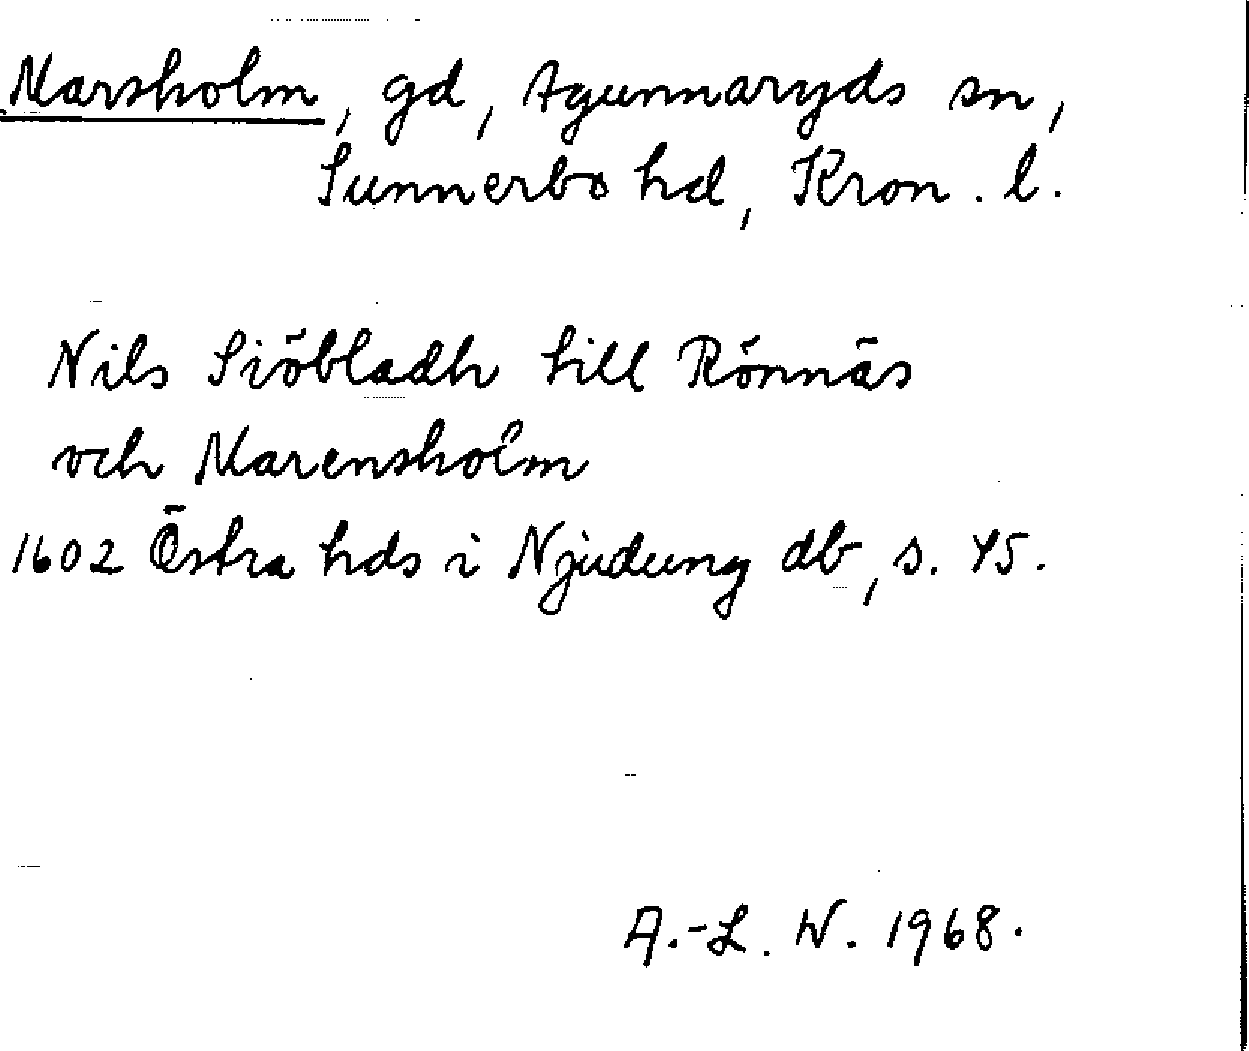 Marsholm, gd, Agunnaryds sn,
Sunnerbo hd, Kron. l.
Nils Siöbladh till Rönnäs
och Marensholm
1602 Östra hds i Njudung db, s. 45.
A.-L. W. 1968.